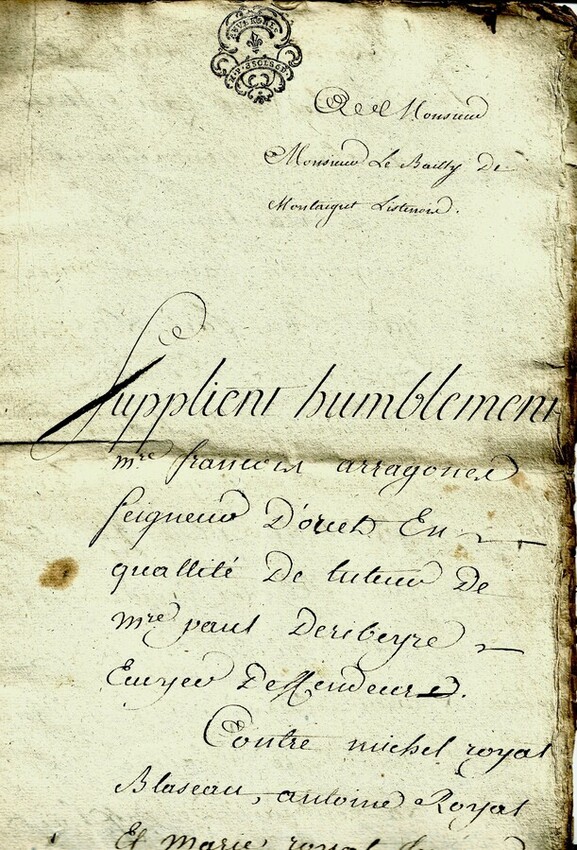 AUVERGNE
A Monsieur
Monsieur Le Bailly De
Montaigut Listenois.
Supplient humblement
mre francois arragones
seigneur D'orcet En
quallité De tuteur De
mre paul Deribeyre
Ecuyer Demandeurs.
Contre michel royal
Blaseau, antoine Royal
Et marie royal